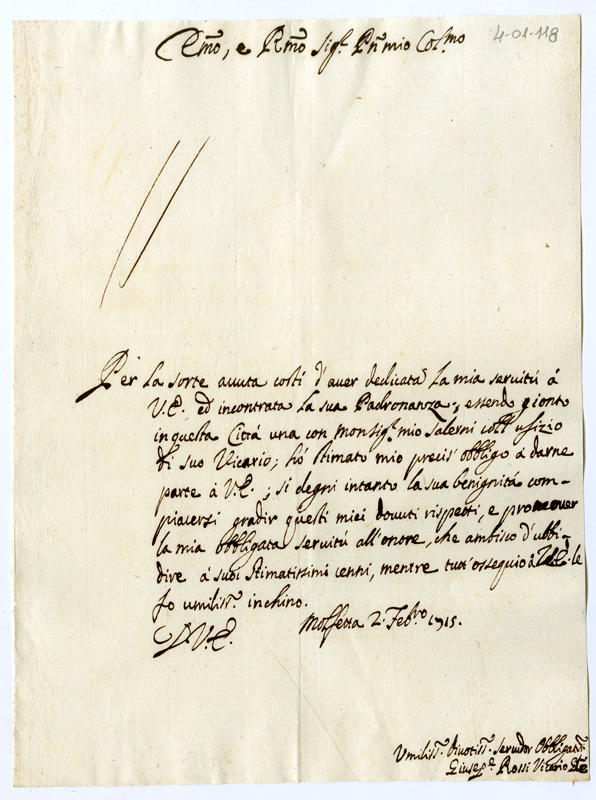 Emo, e Rmo Sigr. Pñ mio Colmo
4-01-118
Per la sorte avuta costì d'aver dedicata la mia servitù à
V.E. ed incontrata la sua Padronanza; essendo gionto
in questa Città una con Monsigr. mio Salerni coll' ufizio
di suo Vicario; hò stimato mio precis' obbligo à darne
parte à V.E.; si degni intanto la sua benignità com-
piacersi gradir questi miei dovuti rispetti, e promover
la mia obbligata servitù all'onore, che ambisco d'ubbi-
dire à suoi stimatissimi cenni, mentre tutt'ossequio à V.E. le
fo umiliss. inchino.
D.V.E. Molfetta 2. Febro. 1715.
Umiliss. divotiss. servidor Obbligat.
Giusepe. Rossi Vicario